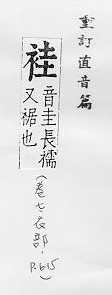 重訂直音篇
袿
音圭長襦
又裾也
(卷七衣部.
P.615)